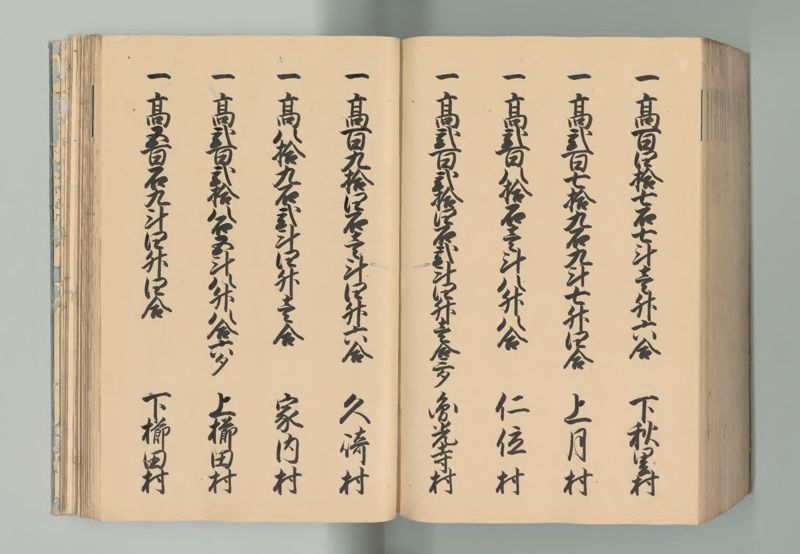 一 高百四拾七石七斗壱升六合 下秋里村
一 高弐百七拾九石九斗七升四合 上月村
一 高弐百八拾石壱斗八升八合 仁位村
一 高弐百弐拾四石弐斗四升壱合 光寺村
一 高百九拾四石壱斗四升六合 久崎村
一 高八拾九石弐斗四升壱合 家内村
一 高弐百弐拾八石五斗八升八合六夕 上櫛田村
一 高五百石九斗四升四合 下櫛田村